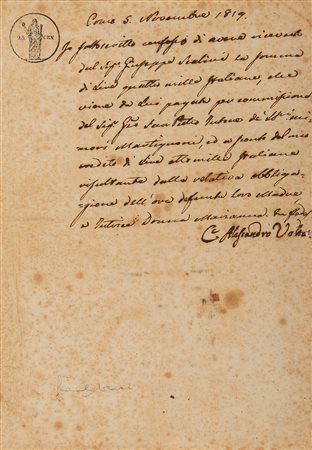 Como 5. Novembre 1819.
Io sottoscritto confesso di avere ricevuto
dal Sig.r Giuseppe la somma
di Lire quattro mille Italiane, che
viene da Lui pagata per commissione
del Sig.r Gio. Tutore de
, ed a sconto del mio
credito di Lire otto mille Italiane
risultante dalla relativa obbliga-
zione dell'ora defunta loro Madre,
e Tutrice Donna Marianna
C. Alessandro Volta